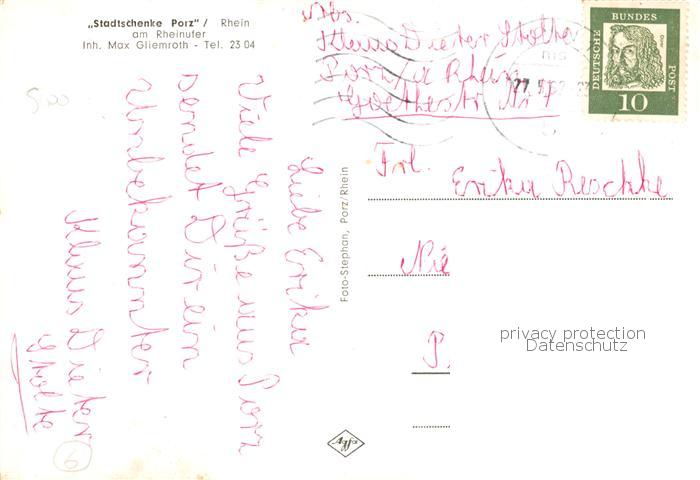 „Stadtschenke Porz" / Rhein
am Rheinufer
Inh. Max Gliemroth - Tel. 23 04
Abs.
Klaus Dieter
Porz / a Rhein
Goethestr Nr 7
DEUTSCHE BUNDESPOST
Dürer
10
27
Frl. Erika Reschke
Nie
P.
privacy protection
Datenschutz
Foto-Stephan, Porz/Rhein
Agfa
500
Liebe Erika
Viele Grüße aus Porz
sendet Dir ein
Unbekannter
Klaus Dieter
6